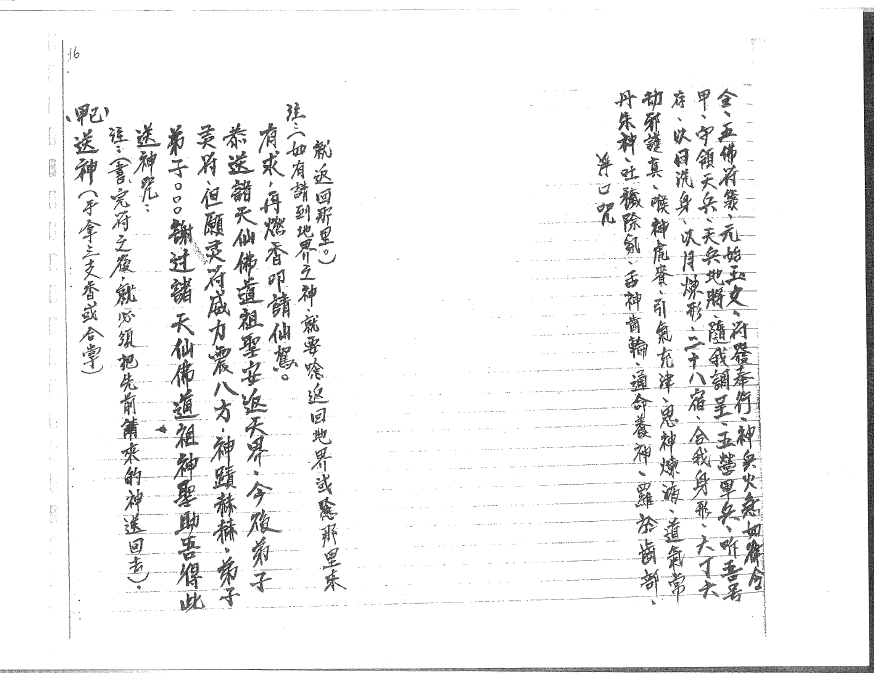 16
(甲己)送神(手拿三支香或合掌)
注：(書完符之後，就必須把先前請來的神送回去)。
送神咒：
弟子○○○謝过諸天仙佛道祖神聖助吾得此
灵符，但願灵符威力震八方，神蹟赫赫，弟子
恭送諸天仙佛道祖聖安返天界，今後弟子
有求，再燃香叩請仙駕。
注：(如有請到地界之神，就要唸返回地界或從那里來
就返回那里。)
净口咒
丹朱神、吐穢除氛、舌神齒輪、通命養神、羅於齒部、
却邪護真、喉神虎賁、引氣充津、思神煉液、道氣常
存、以日洗身、以月煉形、二十八宿、合我身形、六丁六
甲、守領天兵、天兵地將、隨我調呈、五營軍兵、听吾号
令、五佛符箓、元始玉文、符發奉行、神兵火急如律令